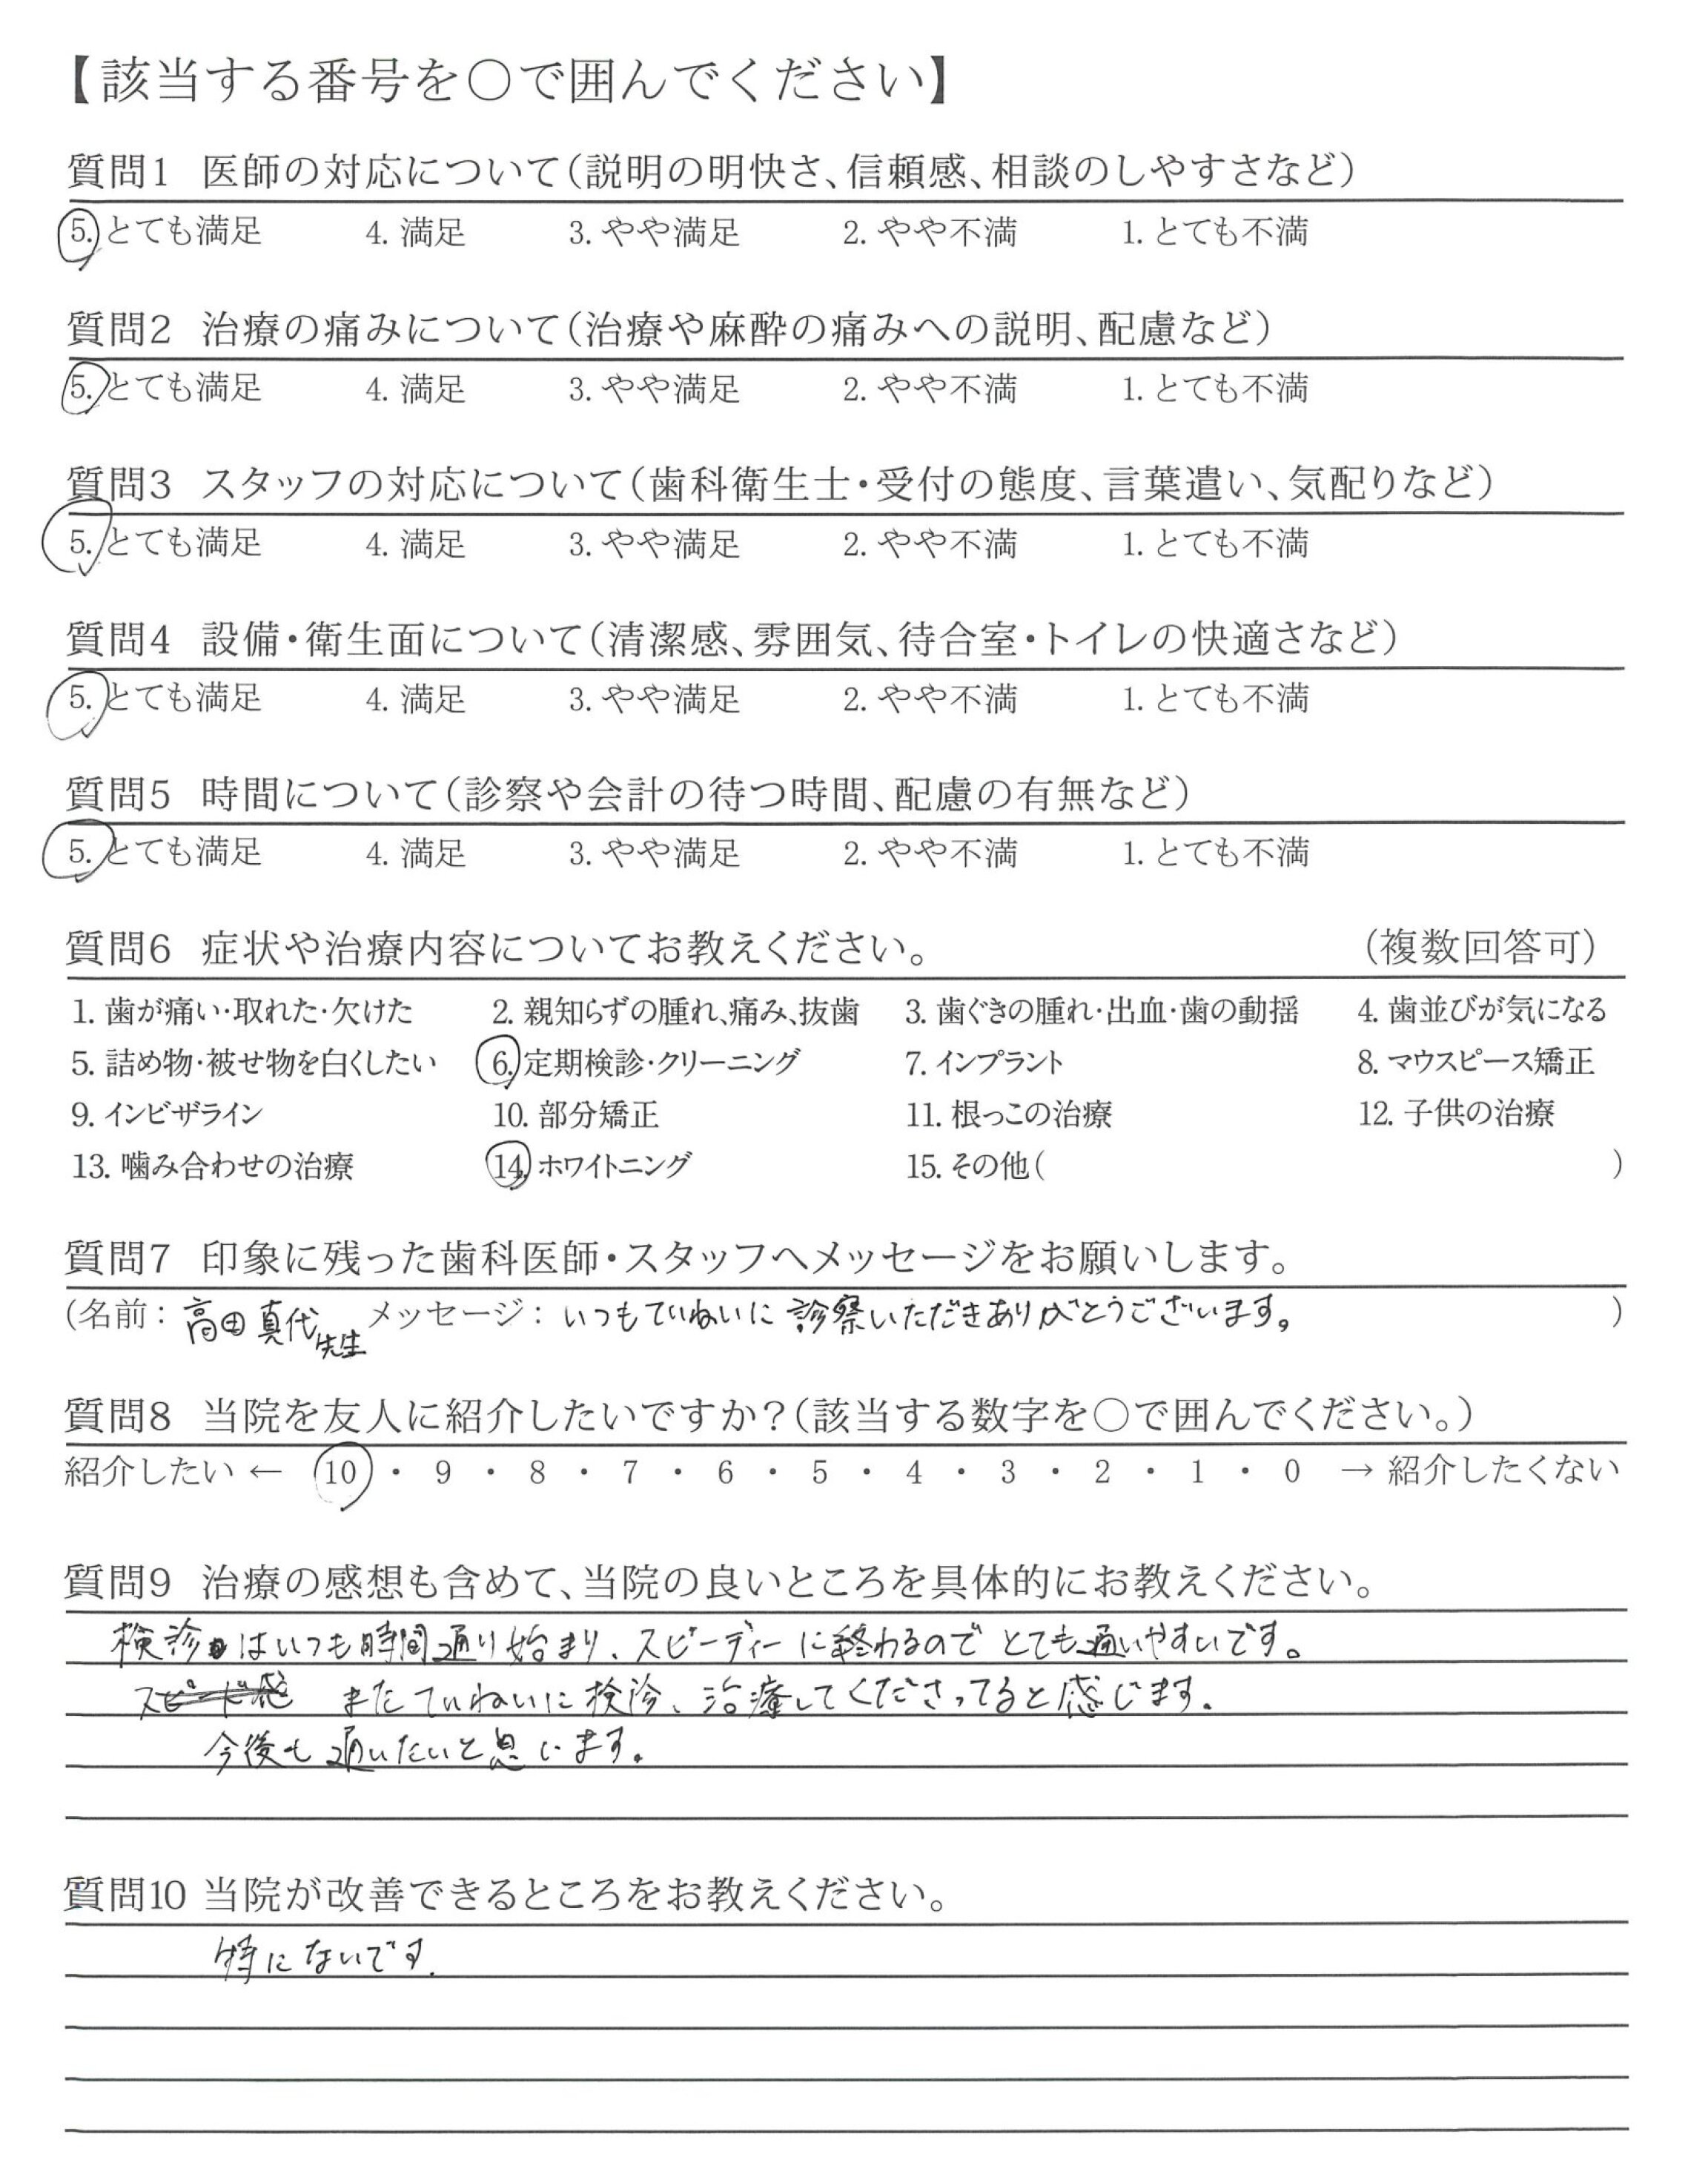 【該当する番号を〇で囲んでください】
質問1 医師の対応について(説明の明快さ、信頼感、相談のしやすさなど)
5. とても満足 4. 満足 3. やや満足 2. やや不満 1. とても不満
質問2 治療の痛みについて(治療や麻酔の痛みへの説明、配慮など)
5. とても満足 4. 満足 3. やや満足 2. やや不満 1. とても不満
質問3 スタッフの対応について(歯科衛生士・受付の態度、言葉遣い、気配りなど)
5. とても満足 4. 満足 3. やや満足 2. やや不満 1. とても不満
質問4 設備・衛生面について(清潔感、雰囲気、待合室・トイレの快適さなど)
5. とても満足 4. 満足 3. やや満足 2. やや不満 1. とても不満
質問5 時間について(診察や会計の待つ時間、配慮の有無など)
5. とても満足 4. 満足 3. やや満足 2. やや不満 1. とても不満
質問6 症状や治療内容についてお教えください。 (複数回答可)
1. 歯が痛い・取れた・欠けた 2. 親知らずの腫れ、痛み、抜歯 3. 歯ぐきの腫れ・出血・歯の動揺 4. 歯並びが気になる
5. 詰め物・被せ物を白くしたい 6. 定期検診・クリーニング 7. インプラント 8. マウスピース矯正
9. インビザライン 10. 部分矯正 11. 根っこの治療 12. 子供の治療
13. 噛み合わせの治療 14. ホワイトニング 15. その他( )
質問7 印象に残った歯科医師・スタッフへメッセージをお願いします。
(名前: 高田真代先生 メッセージ: いつもていねいに診察いただきありがとうございます。 )
質問8 当院を友人に紹介したいですか?(該当する数字を〇で囲んでください。)
紹介したい ← 10 ・ 9 ・ 8 ・ 7 ・ 6 ・ 5 ・ 4 ・ 3 ・ 2 ・ 1 ・ 0 → 紹介したくない
質問9 治療の感想も含めて、当院の良いところを具体的にお教えください。
検診はいつも時間通り始まり、スピーディーに終わるのでとても通いやすいです。
スピード感 またていねいに検診、治療してくださってると感じます。
今後も通いたいと思います。
質問10 当院が改善できるところをお教えください。
特にないです.